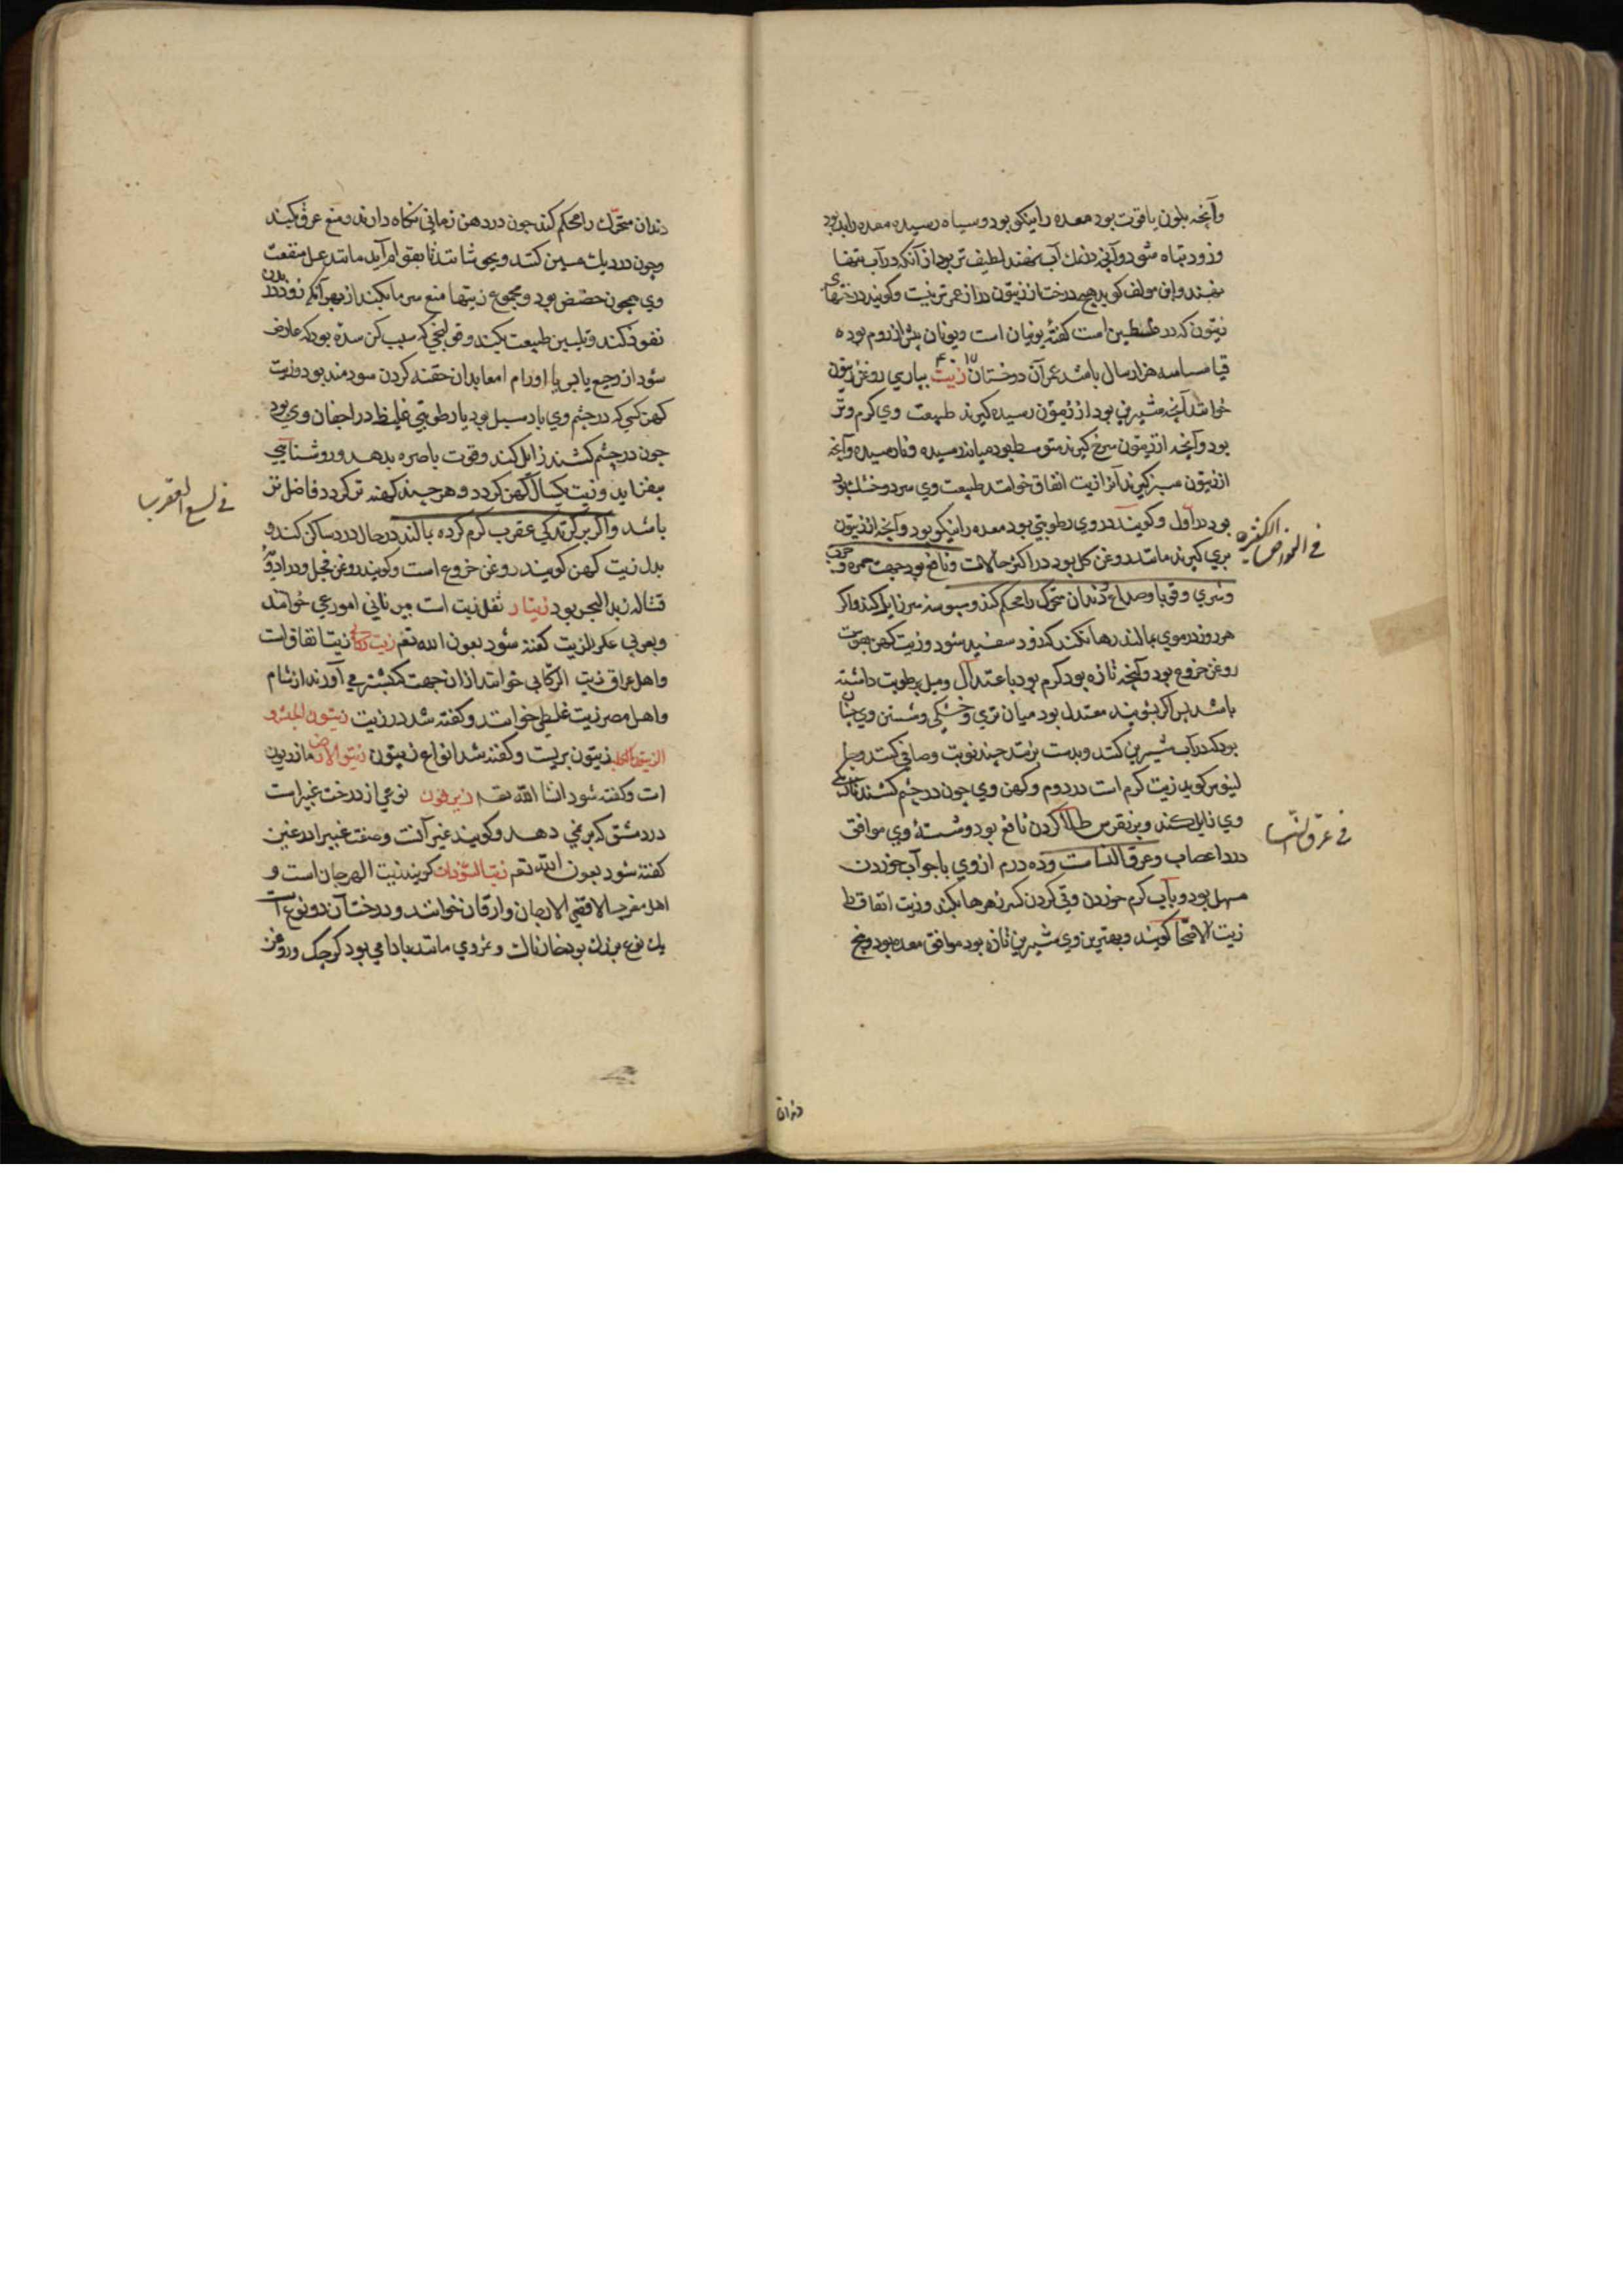 وآنچه بلون یاقوت بود معده را نیکو بود و سیاه رسیده معده را بد بود
وزود تباه شود وآنچ در نمک آب نهند لطیف تر بود از آنکه در آب تنها
نهند و این مولف کوید هیچ درخت از زیتون دراز عمرتر نیست وکویند درختهای
زیتون که در فلسطین است کفتهٔ یونیان است و یونان پیش از روم بوده
سه هزار سال باشد عمر آن درختان زیت بپارسی روغن زیتون
خوانند آنچه شیرین بود از زیتون رسیده کیرند طبیعت وی کرم و تر
بود وآنچه از زیتون سرخ کیرند متوسط بود میان رسیده و نارسیده وآنچه
از زیتون سبز کیرند آنرا زیت انفاق خوانند طبیعت وی سرد وخشک بود
بود در اول وکویند در وی رطوبتی بود معده را نیکو بود وآنچه از زیتون
بری کیرند مانند روغن کل بود در اکثر حالات ونافع بود جهت حمره و جرب
وشری وقوبا وصداع دندان متحرک را محکم کند وسبوسه سر زایل کند واکر
هر روز در موی بمالند رها نکند که زود سفید شود وزیت کهن بقوت
روغن خروع بود وآنچه تازه بود کرم بود باعتدال ومیل برطوبت داشته
باشد پس اکر بشویند معتدل بود میان تری وخشکی وشستن وی چنان
بود که در آب شیرین کنند وبدست بزنند چند نوبت وصافی کنند و
کوید زیت کرم است در دوم وکهن وی چون در چشم کشند تاریکی
وی زایل کند وبر نقرس طلا کردن نافع بود وشستهٔ وی موافق
درد اعصاب وعرق النسا است وده درم از وی باجو آب خوردن
مسهل بود وبآب کرم خوردن وقی کردن کسر زهرها بکند وزیت انفاق را
زیت کویند وبهترین وی شیرین تازه بود موافق معده بود و
فی الخواص الکثیره
فی عرق النسا
دندان متحرک را محکم کند چون در دهن زمانی نکاه دارند ومنع عرق کند
وچون در دیک مسین کنند وبجوشانند تا بقوام آید مانند عسل منفعت
وی همچون حضض بود ومجموع زیتها منع سرما بکند از بهر آنکه زود در بدن
نفوذ کند وتلیین طبیعت بکند وقولنجی که سبب آن سده بود که عارض
شود از وجع یا اورام امعا بدان حقنه کردن سودمند بود وزیت
کهن کسی که در چشم وی باد سبل بود یا رطوبتی غلیظ در اجفان وی بود
چون در چشم کشند زایل کند وقوت باصره بدهد وروشنایی
بیفزاید وزیت یکسال کهن کردد وهر چند کهنه تر کردد فاضل تر
باشد واکر بر کزندکی عقرب کرم کرده بمالند در حال درد ساکن کند و
بدل زیت کهن کویند روغن خروع است وکویند روغن فجل ودر ادویه
قتاله زبد البحر بود زیتار ثفل زیت است بیونانی امورغی خوانند
وبعربی عکر الزیت کفته شود بعون الله تعم زیت رکابی زیت انفاق است
واهل عراق زیت الرکابی خوانند از آن جهت که بشتر می آورند از شام
واهل مصر زیت خوانند وکفته شد در زیت زیتون الحبش و
زیتون بریست وکفته شد انواع زیتون زیتون الارض مازریون
است وکفته شود انشا الله تعم زیرفون نوعی از درخت غبیرا است
در دمشق که بر نمی دهد وکویند غیر آنست وصفت غبیرا در غین
کفته شود بعون الله تعم زیت السودان کویند زیت الهرجان است و
اهل مغرب الارجان وارقان خوانند ودرخت آن دو نوع است
یک نوع بزرک بود خارناک وثمر وی مانند بادامی بود کوچک وروغن
فی لسع العقرب